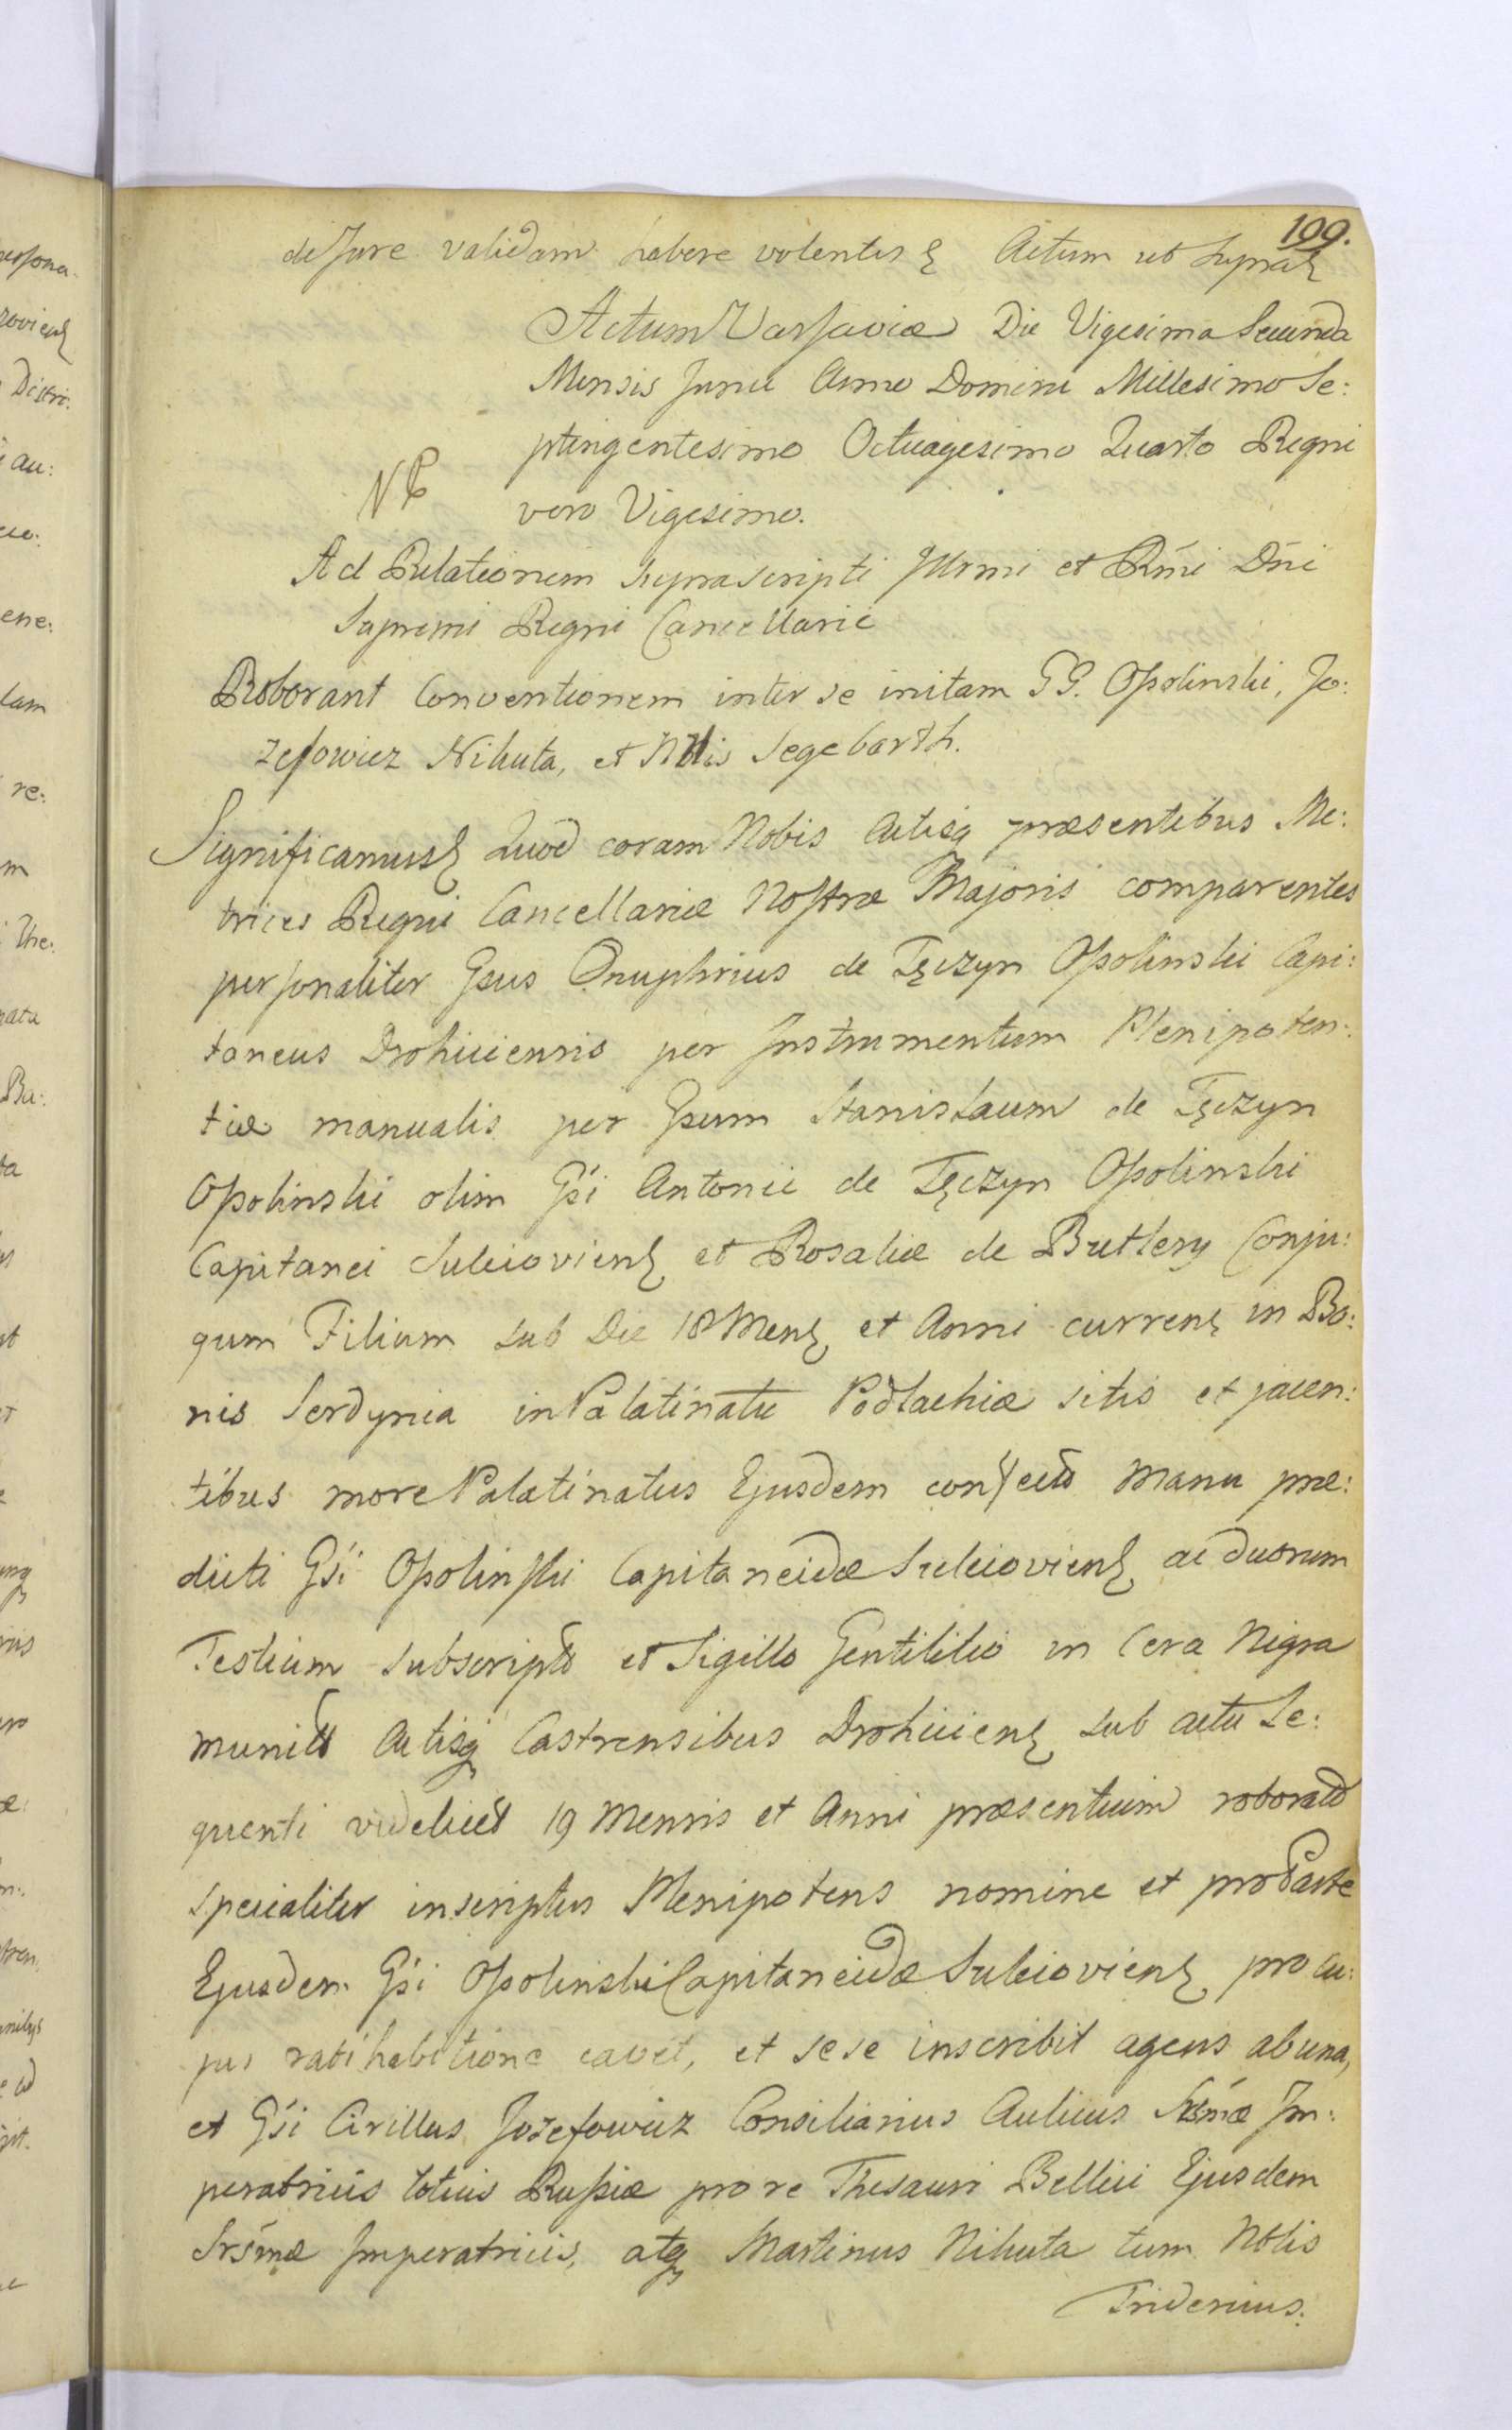 199.
de Jure validam habere volentes Actum ut Supra
Actum Varsaviæ Die Vigesima Secunda
Mensis Junii Anno Domini Millesimo Se:
ptingentesimo Octuagesimo Quarto Regni
vero Vigesimo.
Ad Relationem Suprascripti Illrmi et Rmi Dni
Supremi Regni Cancellarii
Roborant Conventionem inter se initam GG. Opolinski, Jo:
zefowicz Nikuta, et Nblis Segebarth.
Significamus Quod coram Nobis Actisq præsentibus Me:
trices Regni Cancellariæ Nostræ Majoris comparentes
personaliter Gsus Onuphrius de Tęczyn Opolinski Capi:
taneus Drohiciensis per Instrumentum Plenipoten:
tiæ manualis per Gsum Stanislaum de Tęczyn
Opolinski olim Gsi Antonii de Tęczyn Opolinski
Capitanei Sulciovien et Rosaliæ de Butlery Conju:
gum Filium sub Die 18 Mens et Anni curren in Bo:
nis Serdynia in Palatinatu Podlachiæ sitis et jacen:
tibus more Palatinatus Ejusdem confecto Manu præ:
dicti Gsi Opolinski Capitaneidæ Sulciovien ac duorum
Testium subscripto et Sigillo Gentilitio in Cera Nigra
munito Actisq Castrensibus Drohicien sub actu Se:
quenti videlicet 19 Mensis et Anni præsentium roborato
specialiter inscriptus Plenipotens nomine et pro Parte
Ejusdem Gsi Opolinski Capitaneidæ Sulciovien pro cu:
jus ratihabitione cavet, et sese inscribit agens ab una,
et Gsi Cirillus Jozefowicz Consiliarius Aulicus Srsmæ Im:
peratricis totius Russiæ pro re Thesauri Bellici Ejusdem
Srsmæ Imperatricis, atq Martinus Nikuta tum Nblis
Fridericus: